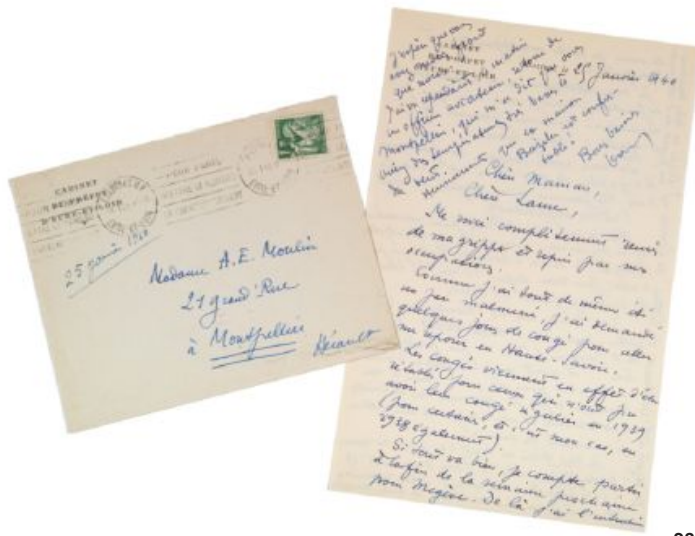 CABINET
DU PRÉFET
D'EURE-ET-LOIR
25 janvier 1940
Madame A. E. Moulin
21 grand'Rue
à Montpellier
Hérault
CABINET
DU PRÉFET
D'EURE-ET-LOIR
le 25 Janvier 1940
J'ai vu cependant ce matin
un officier aviateur, retour de
Montpellier, qui m'a dit que vous
Chère Maman,
Chère Laure,
Me voici complètement remis
de ma grippe et repris par mes
occupations.
Comme j'ai tout de même été
un peu malmené, j'ai demandé
quelques jours de congé pour aller
me reposer en Haute-Savoie.
Les congés viennent en effet d'être
rétablis pour ceux qui n'ont pu
avoir leur congé régulier en 1939
(pour certains, et c'est mon cas, en
1938 également).
Si tout va bien, je compte partir
à la fin de la semaine prochaine
pour Megève. De là j'ai l'intention